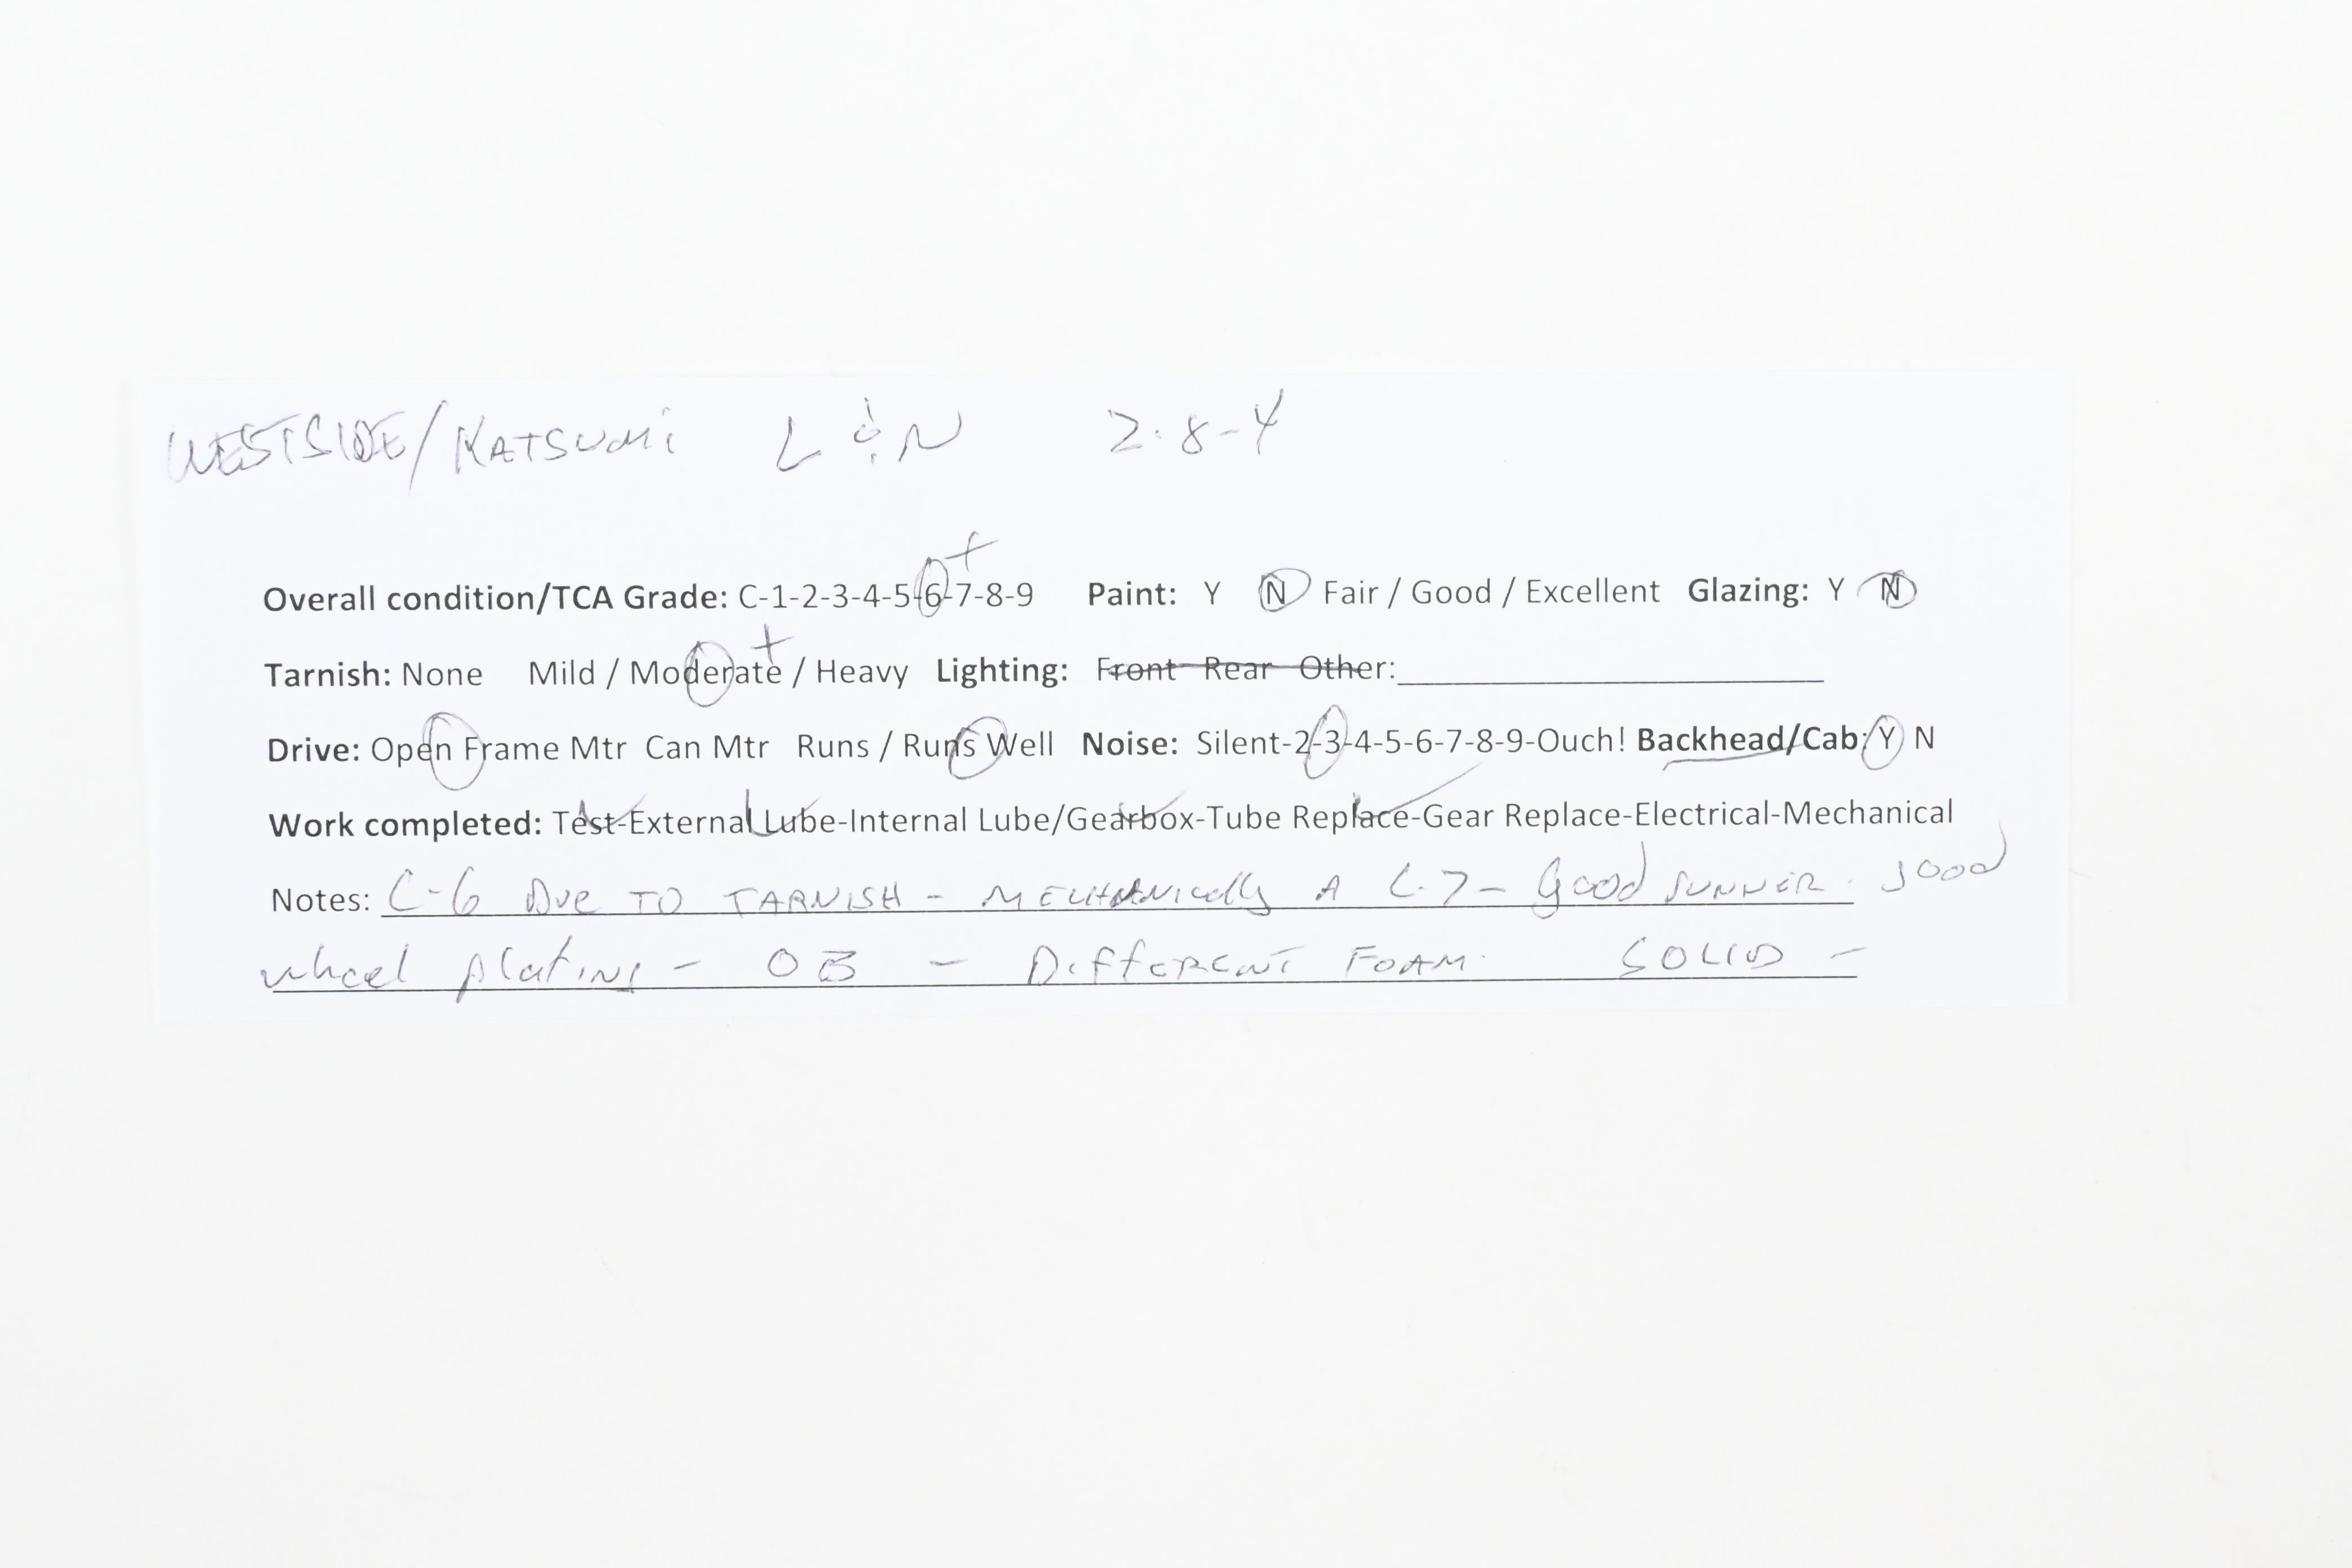 WESTSIDE/KATSUMI L & N 2-8-4
Overall condition/TCA Grade: C-1-2-3-4-5-6-7-8-9 + Paint: Y N Fair / Good / Excellent Glazing: Y N
Tarnish: None Mild / Moderate + / Heavy Lighting: Front Rear Other:
Drive: Open Frame Mtr Can Mtr Runs / Runs Well Noise: Silent-2-3-4-5-6-7-8-9-Ouch! Backhead/Cab: Y N
Work completed: Test-External Lube-Internal Lube/Gearbox-Tube Replace-Gear Replace-Electrical-Mechanical
Notes: C-6 DUE TO TARNISH - MECHANICally A C-7 - Good runner. good
wheel plating - OB - DIFFERENT FOAM. SOLID -